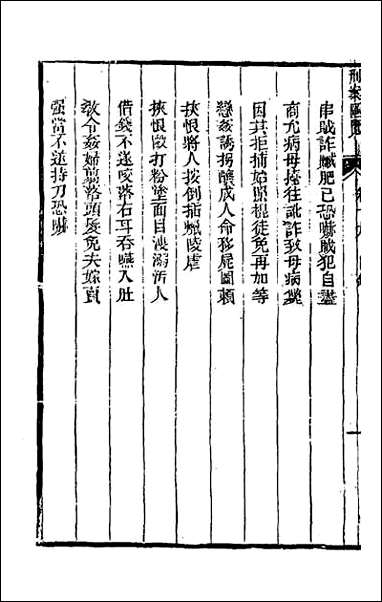 刑案匯覽
串賊詐贓肥己恐嚇賊犯自盡
商允病母擡往訛詐致母病斃
因其拒捕始照棍徒免再加等
戀姦誘拐釀成人命移屍圖賴
挾恨將人按倒插蠟陵虐
挾恨毆打粉塗面目溺汚人
借錢不遂咬落右耳吞嚥入肚
教令姦婦剪落頭髮免夫嫁賣
强當不遂持刀恐嚇